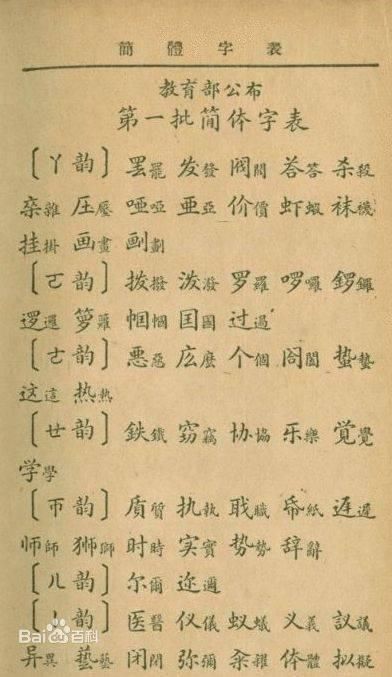 簡體字表
教育部公布
第一批简体字表
〔ㄚ韵〕 罢罷 发發 阀閥 荅答 杀殺
杂雜 压壓 唖啞 亜亞 价價 虾蝦 袜襪
挂掛 画畫 㓰劃
〔ㄛ韵〕 拨撥 泼潑 罗羅 啰囉 锣鑼
逻邏 箩籮 帼幗 囯國 过過
〔ㄜ韵〕 悪惡 庅麼 个個 閤 蛰蟄
这這 热熱
〔ㄝ韵〕 鉄鐵 窃竊 协協 乐樂 覚覺
学學
〔ㄭ韵〕 质質 执執 职職 帋紙 迟遲
师師 狮獅 时時 实實 势勢 辞辭
〔ㄦ韵〕 尔爾 迩邇
〔ㄧ韵〕 医醫 仪儀 蚁蟻 义義 议議
异異 藝 闭閉 弥彌 籴糴 体體 拟擬
Bai百科